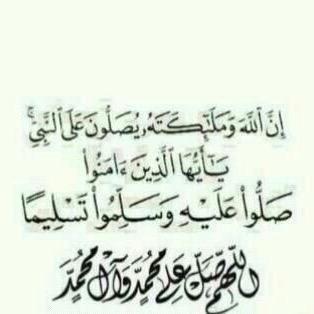 إِنَّ ٱللَّهَ وَمَلَٰٓئِكَتَهُۥ يُصَلُّونَ عَلَى ٱلنَّبِىِّ ۚ
يَٰٓأَيُّهَا ٱلَّذِينَ ءَامَنُوا۟
صَلُّوا۟ عَلَيْهِ وَسَلِّمُوا۟ تَسْلِيمًا
اللّهُمَّ صَلِّ عَلى مُحَمَّدٍ وَآلِ مُحَمَّدٍ